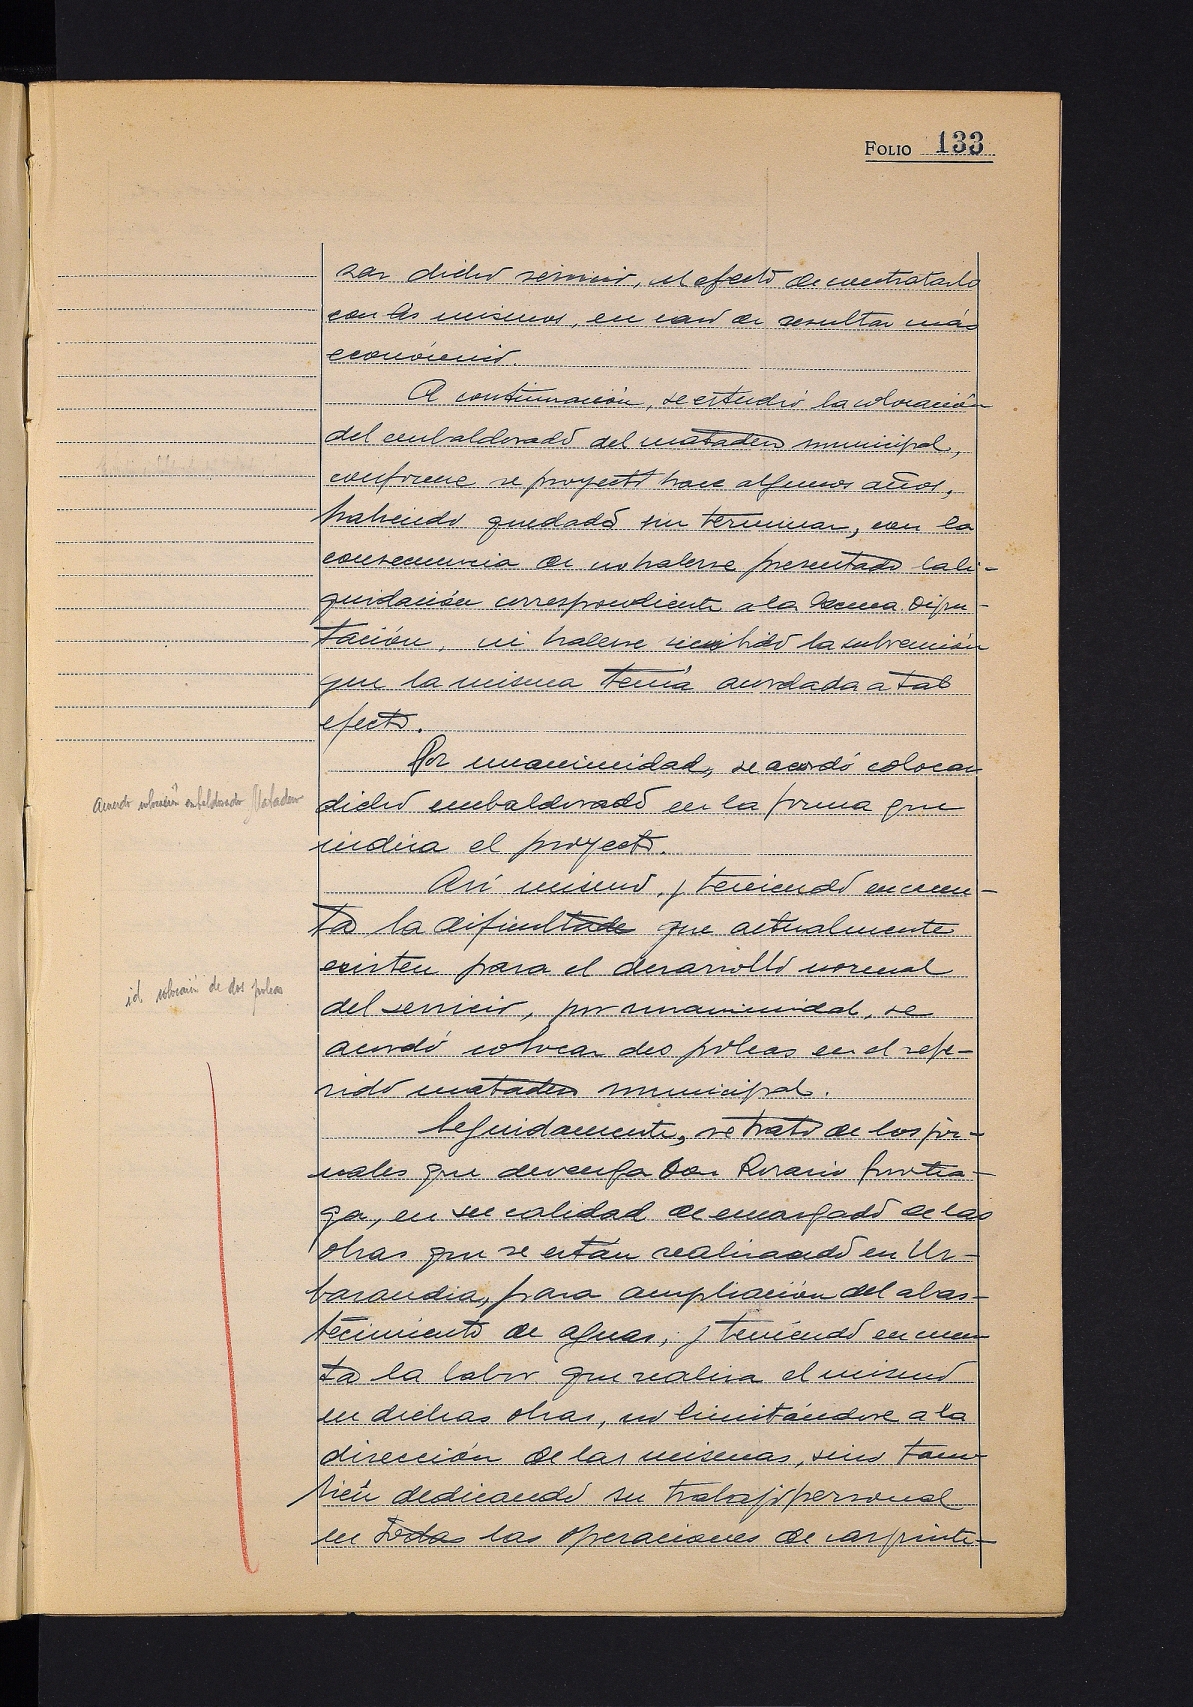 FOLIO 133
zar dicho servicio, al efecto de contratarlo
con los mismos, en caso de resultar más
económico.
A continuación, se estudió la colocación
del embaldosado del matadero municipal,
conforme se proyectó hace algunos años,
habiendo quedado sin terminar, con la
consecuencia de no haberse presentado la li-
quidación correspondiente a la Excma. Dipu-
tación, ni haberse recibido la subvención
que la misma tenía acordada a tal
efecto.
Por unanimidad, se acordó colocar
Acuerdo colocación embaldosado Matadero
dicho embaldosado en la forma que
indica el proyecto.
Así mismo, y teniendo en cuen-
ta la dificultade que actualmente
existen para el desarrollo normal
id. colocación de dos poleas
del servicio, por unanimidad, se
acordó colocar dos poleas en el refe-
rido matadero municipal.
Seguidamente, se trató de los jor-
nales que devenga Don Rosario
ga, en su calidad de encargado de las
obras que se están realizando en Ur-
barandia, para ampliación del abas-
tecimiento de aguas, y teniendo en cuen-
ta la labor que realiza el mismo
en dichas obras, no limitándose a la
dirección de las mismas, sino tam-
bién dedicando su trabajo personal
en todas las operaciones de carpinte-